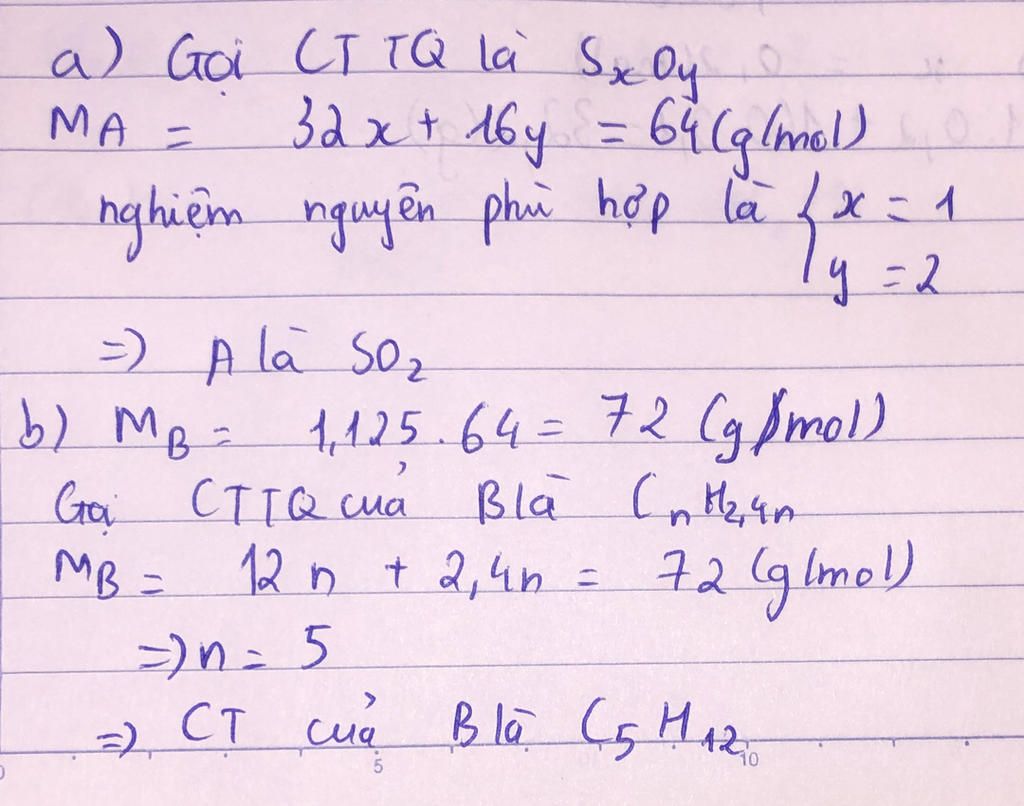 a) Gọi CTTQ là SxOy
MA = 32x + 16y = 64 (g/mol)
nghiệm nguyên phù hợp là { x = 1
y = 2
=> A là SO2
b) MB = 1,125 . 64 = 72 (g/mol)
Gọi CTTQ của B là CnH2,4n
MB = 12n + 2,4n = 72 (g/mol)
=> n = 5
=> CT của B là C5H12
5 10